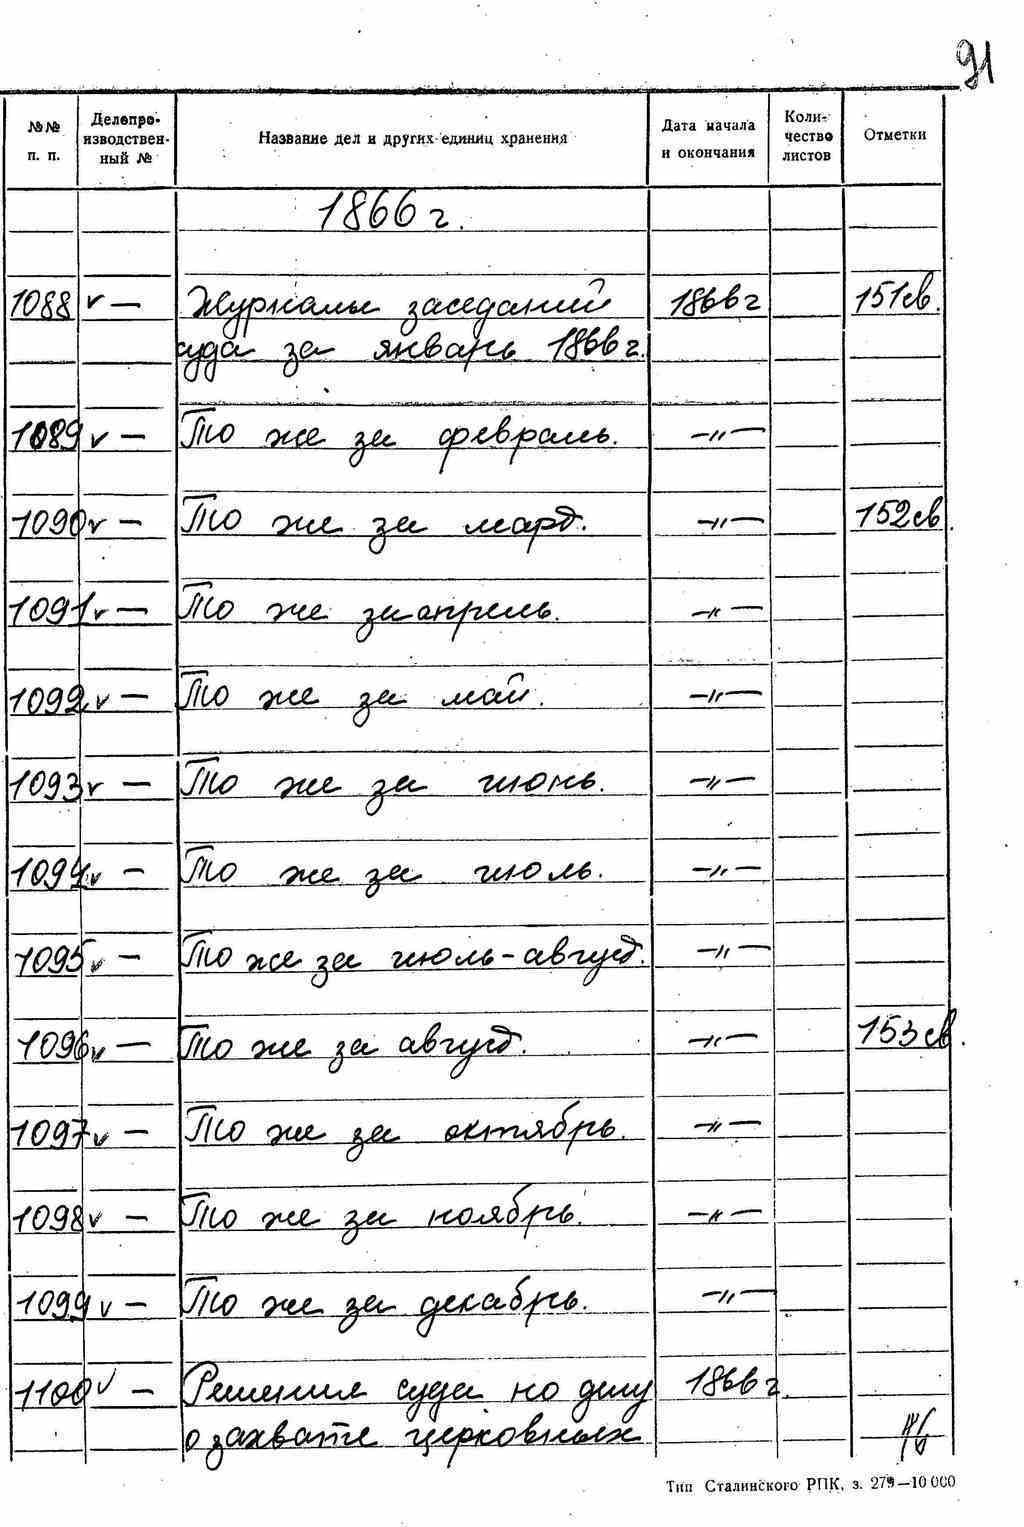 91
№№ п. п. Делопроизводственный № Название дел и других единиц хранения Дата начала и окончания Количество листов Отметки
1866 г.
1088 v — Журналы заседаний 1866 г 151 св.
суда за январь 1866 г.
1089 v — То же за февраль. —〃—
1090 v — То же за март. —〃— 152 св.
1091 v — То же за апрель. —〃—
1092 v — То же за май. —〃—
1093 v — То же за июнь. —〃—
1094 v — То же за июль. —〃—
1095 v — То же за июль-август. —〃—
1096 v — То же за август. —〃— 153 св.
1097 v — То же за октябрь. —〃—
1098 v — То же за ноябрь. —〃—
1099 v — То же за декабрь. —〃—
1100 v — Решения суда по делу 1866 г.
о захвате церковных
Тип Сталинского РПК, з. 279—10 000